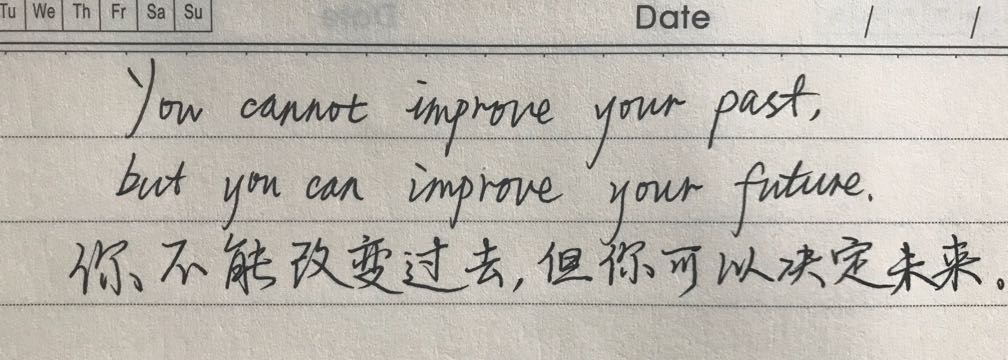 Tu We Th Fr Sa Su Date / /
You cannot improve your past,
but you can improve your future.
你不能改变过去,但你可以决定未来。